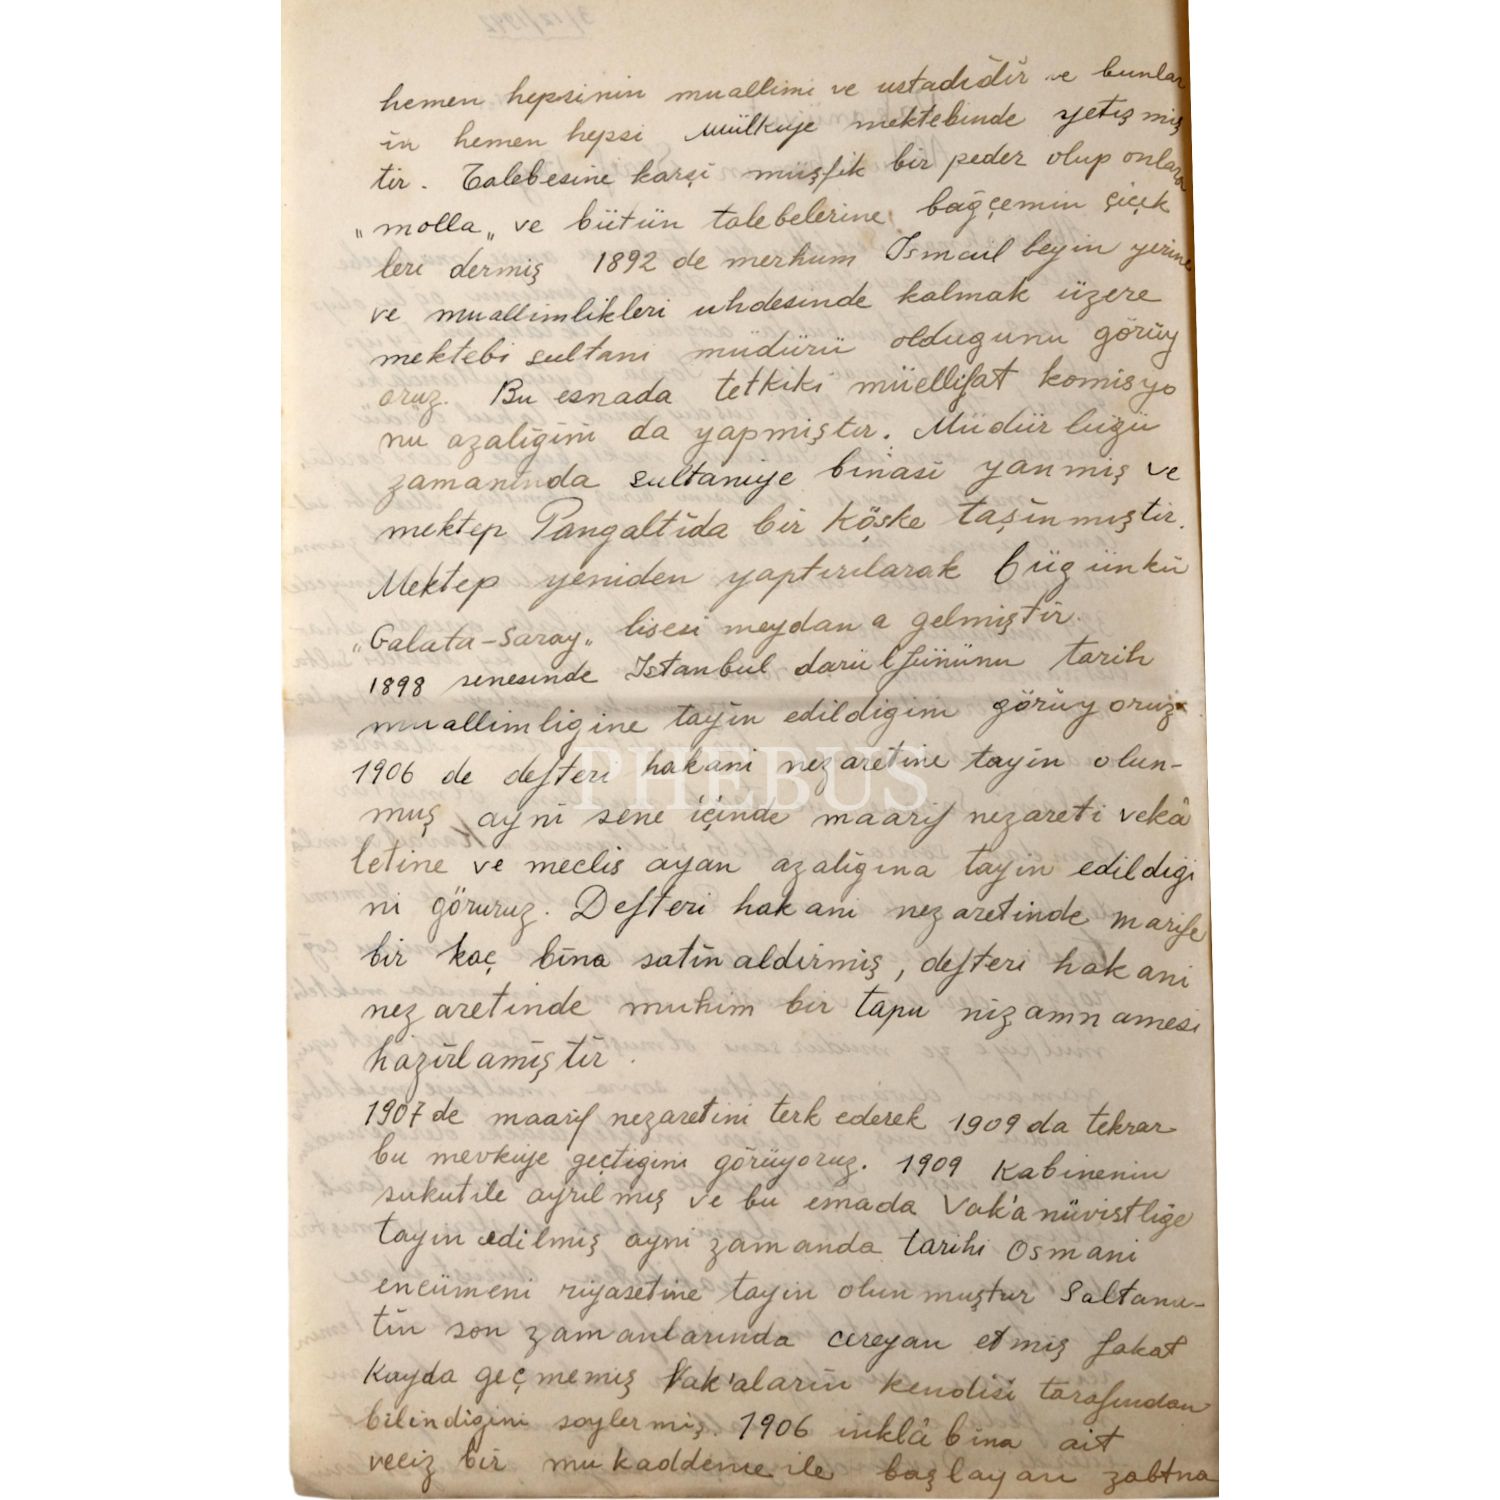 hemen hepsinin muallimi ve ustadıdır ve bunlar
ın hemen hepsi Mülkiye mektebinde yetişmiş
tir. Talebesine karşı müşfik bir peder olup onlara
„molla„ ve bütün talebelerine bağçemin çiçek
leri dermiş 1892 de merhum Ismail beyin yerine
ve muallimlikleri uhdesinde kalmak üzere
mektebi sultani müdürü oldugunu görüy
oruz. Bu esnada tetkiki müellifat komisyo
nu azalığını da yapmıştır. Müdürlüğü
zamanında sultaniye binası yanmış ve
mektep Pangaltıda bir köşke taşınmıştır.
Mektep yeniden yaptırılarak bügünkü
„Galata-Saray„ lisesi meydana gelmiştir.
1898 senesinde Istanbul darülfünunu tarih
muallimligine tayin edildigini görüyoruz
1906 de defteri hakani nezaretine tayin olun-
muş ayni sene içinde maarif nezareti vekâ
letine ve meclis ayan azalıgına tayin edildigi
ni görürüz. Defteri hakani nezaretinde marife
bir kaç bina satın aldırmış, defteri hakani
nezaretinde muhim bir tapu nizamnamesi
hazırlamıştır.
1907 de maarif nezaretini terk ederek 1909 da tekrar
bu mevkiye geçtigini görüyoruz. 1909 Kabinenin
sukutile ayrılmış ve bu esnada Vak'anüvistliğe
tayin edilmiş ayni zamanda tarihi Osmani
encümeni riyasetine tayin olunmuştur Saltana-
tın son zamanlarında cereyan etmiş fakat
Kayda geçmemiş Vak'aların kendisi tarafından
bilindigini soylermiş. 1906 inklâbına ait
veciz bir mukaddeme ile başlayan zabtna
PHEBUS